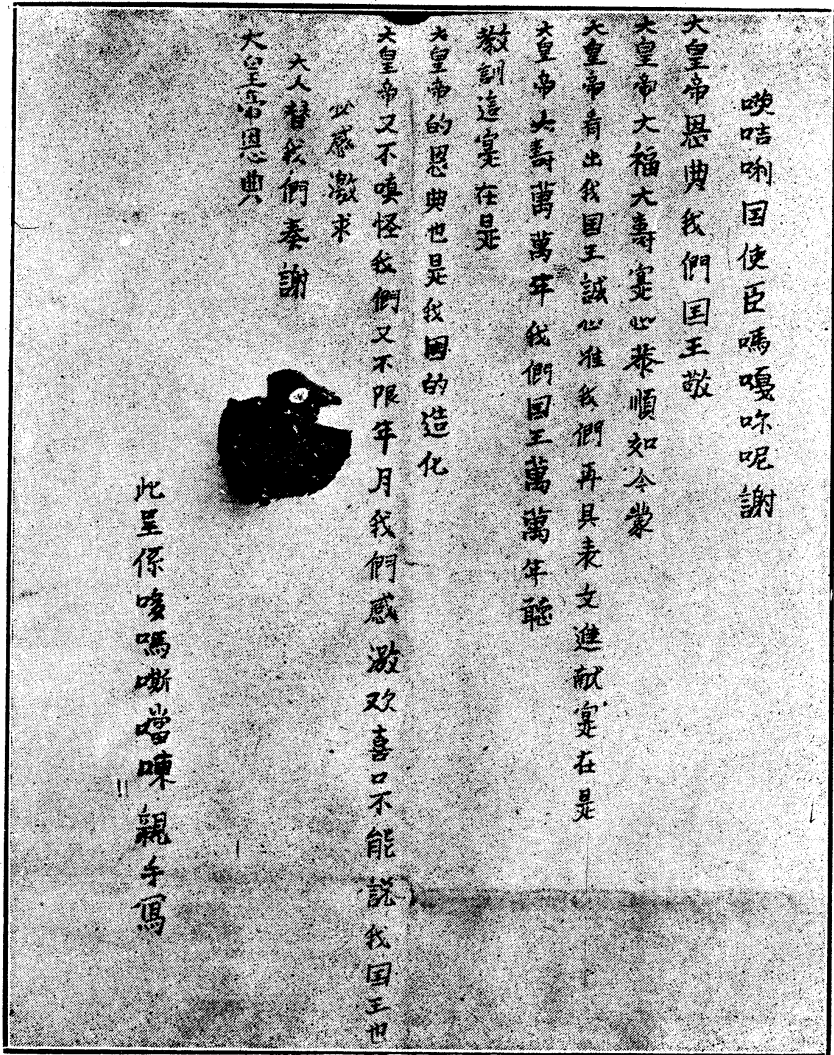 㗲咭唎国使臣嗎嘎㖠呢謝
大皇帝恩典我們国王敬
大皇帝大福大壽寔心恭順如今蒙
大皇帝看出我国王誠心准我們再具表文進献寔在是
大皇帝大壽萬萬年我們国王萬萬年聽
教訓這寔在是
大皇帝的恩典也是我國的造化
大皇帝又不嗔怪我們又不限年月我們感激欢喜口不能說我国王也
必感激求
大人替我們奏謝
大皇帝恩典
此呈係哆嗎嘶噹㖦親手寫